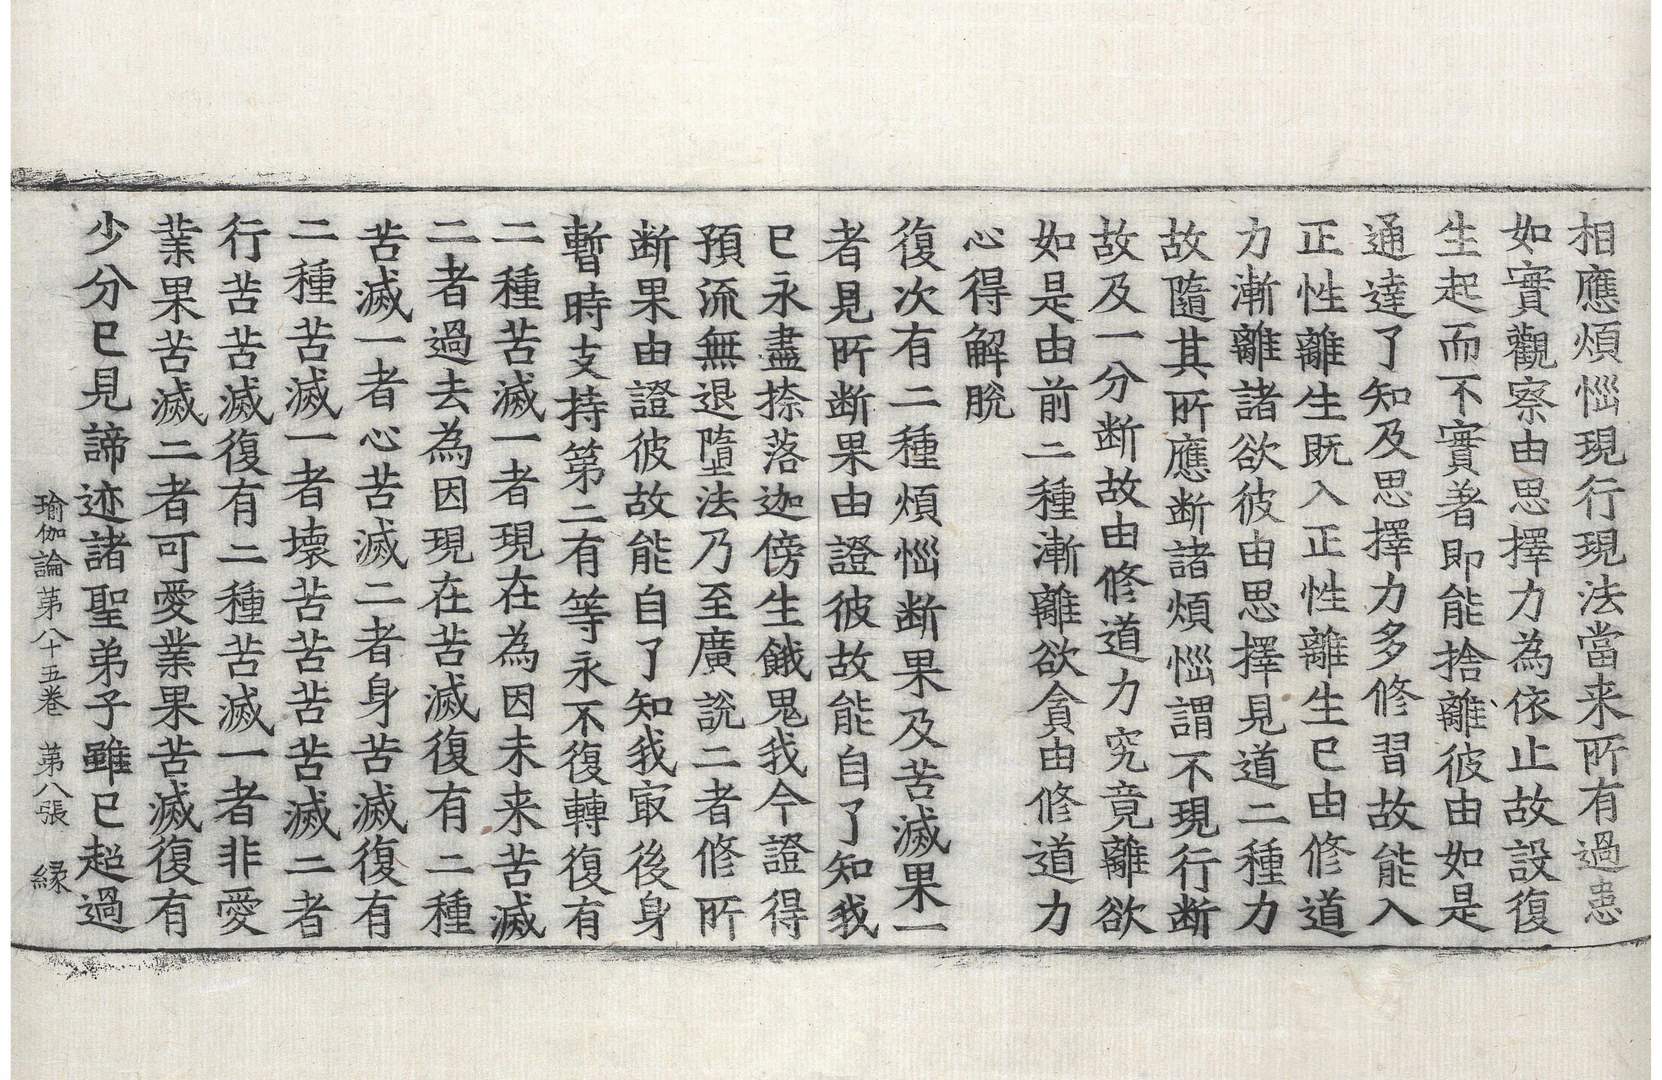 相應煩惱現行現法當来所有過患
如實觀察由思擇力為依止故設復
生起而不實著即能捨離彼由如是
通達了知及思擇力多修習故能入
正性離生既入正性離生已由修道
力漸離諸欲彼由思擇見道二種力
故隨其所應断諸煩惱謂不現行断
故及一分断故由修道力究竟離欲
如是由前二種漸離欲貪由修道力
心得解脫
復次有二種煩惱断果及苦滅果一
者見所断果由證彼故能自了知我
已永盡捺落迦傍生餓鬼我今證得
預流無退墮法乃至廣說二者修所
断果由證彼故能自了知我㝡後身
暫時支持第二有等永不復轉復有
二種苦滅一者現在為因未来苦滅
二者過去為因現在苦滅復有二種
苦滅一者心苦滅二者身苦滅復有
二種苦滅一者壞苦苦苦滅二者
行苦苦滅復有二種苦滅一者非愛
業果苦滅二者可愛業果苦滅復有
少分已見諦迹諸聖弟子雖已超過
瑜伽論第八十五卷 第八張 縁